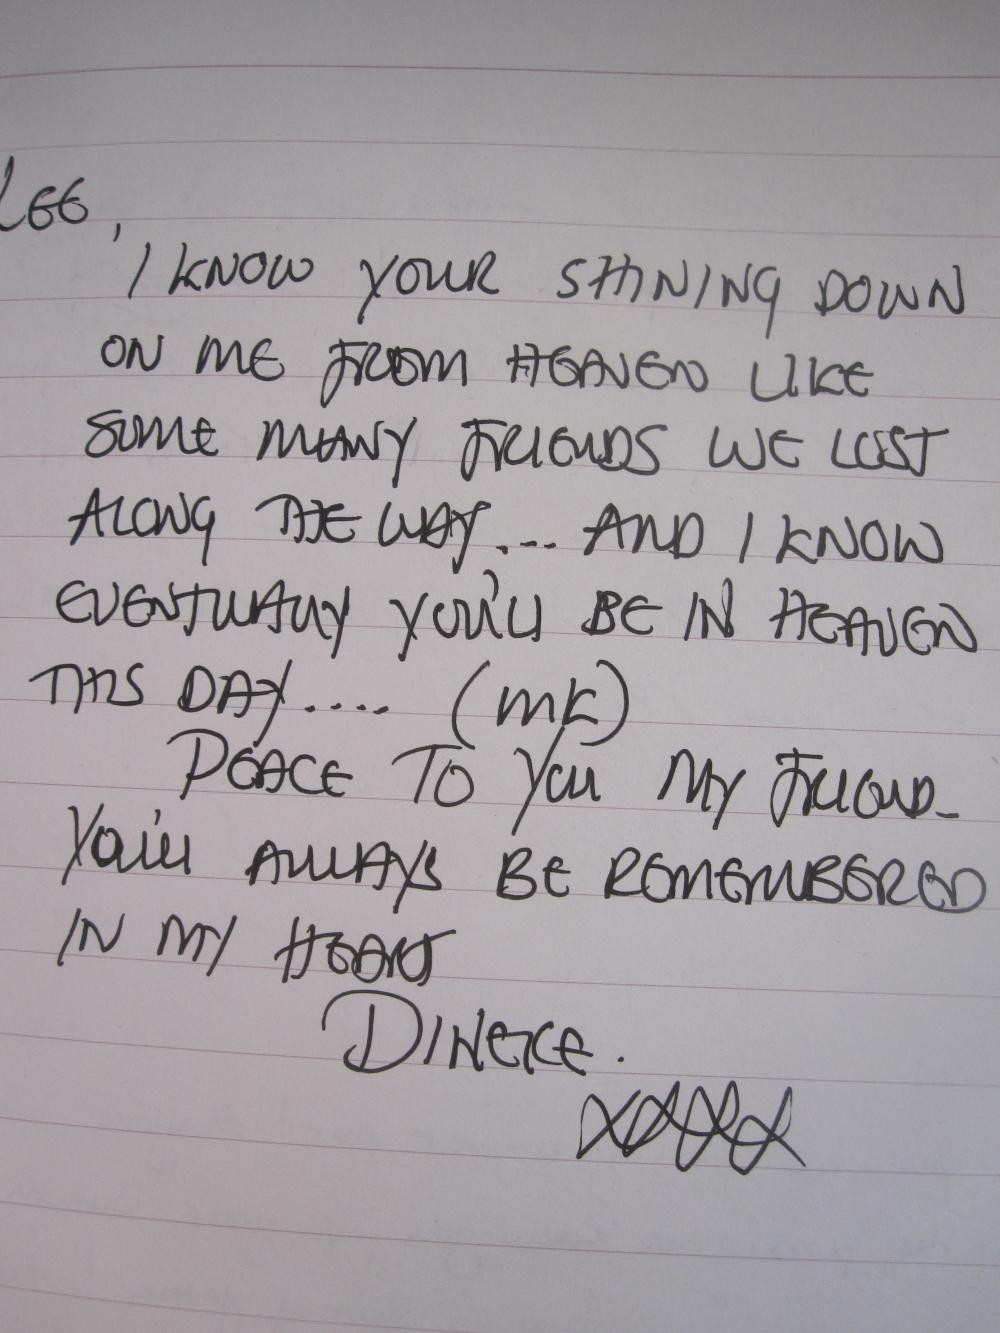 LEE,
I KNOW YOUR SHINING DOWN
ON ME FROM HEAVEN LIKE
SOME MANY FRIENDS WE LOST
ALONG THE WAY.... AND I KNOW
EVENTUALLY YOU'LL BE IN HEAVEN
THIS DAY.... (MK)
PEACE TO YOU MY FRIEND-
YOU'LL ALWAYS BE REMEMBERED
IN MY HEART
XXXX